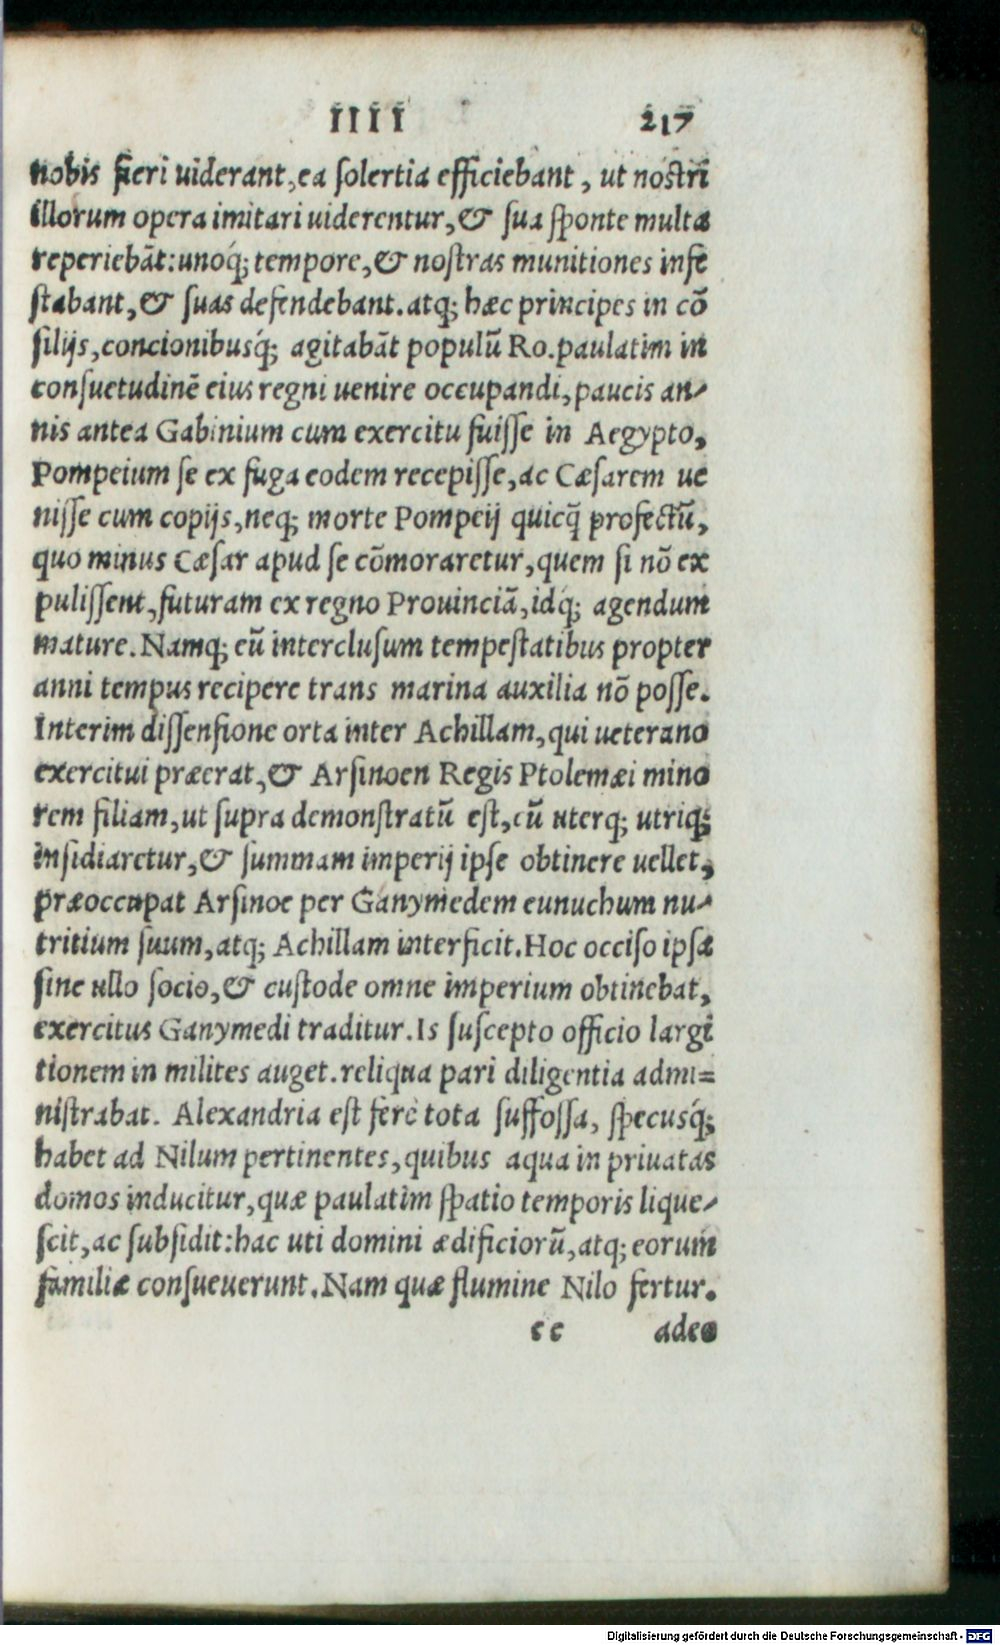 IIII 217
nobis fieri uiderant, ea ſolertia efficiebant, ut noſtri
illorum opera imitari uiderentur, & ſua ſponte multa
reperiebāt: unoq́; tempore, & noſtras munitiones infe
ſtabant, & ſuas defendebant. atq; hæc principes in cō
ſilijs, concionibusq́; agitabāt populū Ro. paulatim in
conſuetudinē eius regni uenire occupandi, paucis an-
nis antea Gabinium cum exercitu fuiſſe in Aegypto,
Pompeium ſe ex fuga eodem recepiſſe, ac Cæſarem ue
niſſe cum copijs, neq; morte Pompeij quicq̄ profectū,
quo minus Cæſar apud ſe cōmoraretur, quem ſi nō ex
puliſſent, futuram ex regno Prouinciā, idq́; agendum
mature. Namq; eū interclusum tempeſtatibus propter
anni tempus recipere trans marina auxilia nō poſſe.
Interim diſſenſione orta inter Achillam, qui ueterano
exercitui præerat, & Arſinoen Regis Ptolemæi mino
rem filiam, ut ſupra demonſtratū eſt, cū uterq; utriq;
inſidiaretur, & ſummam imperij ipſe obtinere uellet,
præoccupat Arſinoe per Ganymedem eunuchum nu-
tritium ſuum, atq; Achillam interficit. Hoc occiſo ipſa
ſine ullo ſocio, & cuſtode omne imperium obtinebat,
exercitus Ganymedi traditur. Is ſuſcepto officio largi
tionem in milites auget. reliqua pari diligentia admi=
niſtrabat. Alexandria eſt ferè tota ſuffoſſa, ſpecusq́;
habet ad Nilum pertinentes, quibus aqua in priuatas
domos inducitur, quæ paulatim ſpatio temporis lique-
ſcit, ac ſubſidit: hac uti domini ædificiorū, atq; eorum
familiæ conſueuerunt. Nam quæ flumine Nilo fertur.
cc adeo
Digitalisierung gefördert durch die Deutsche Forschungsgemeinschaft - DFG